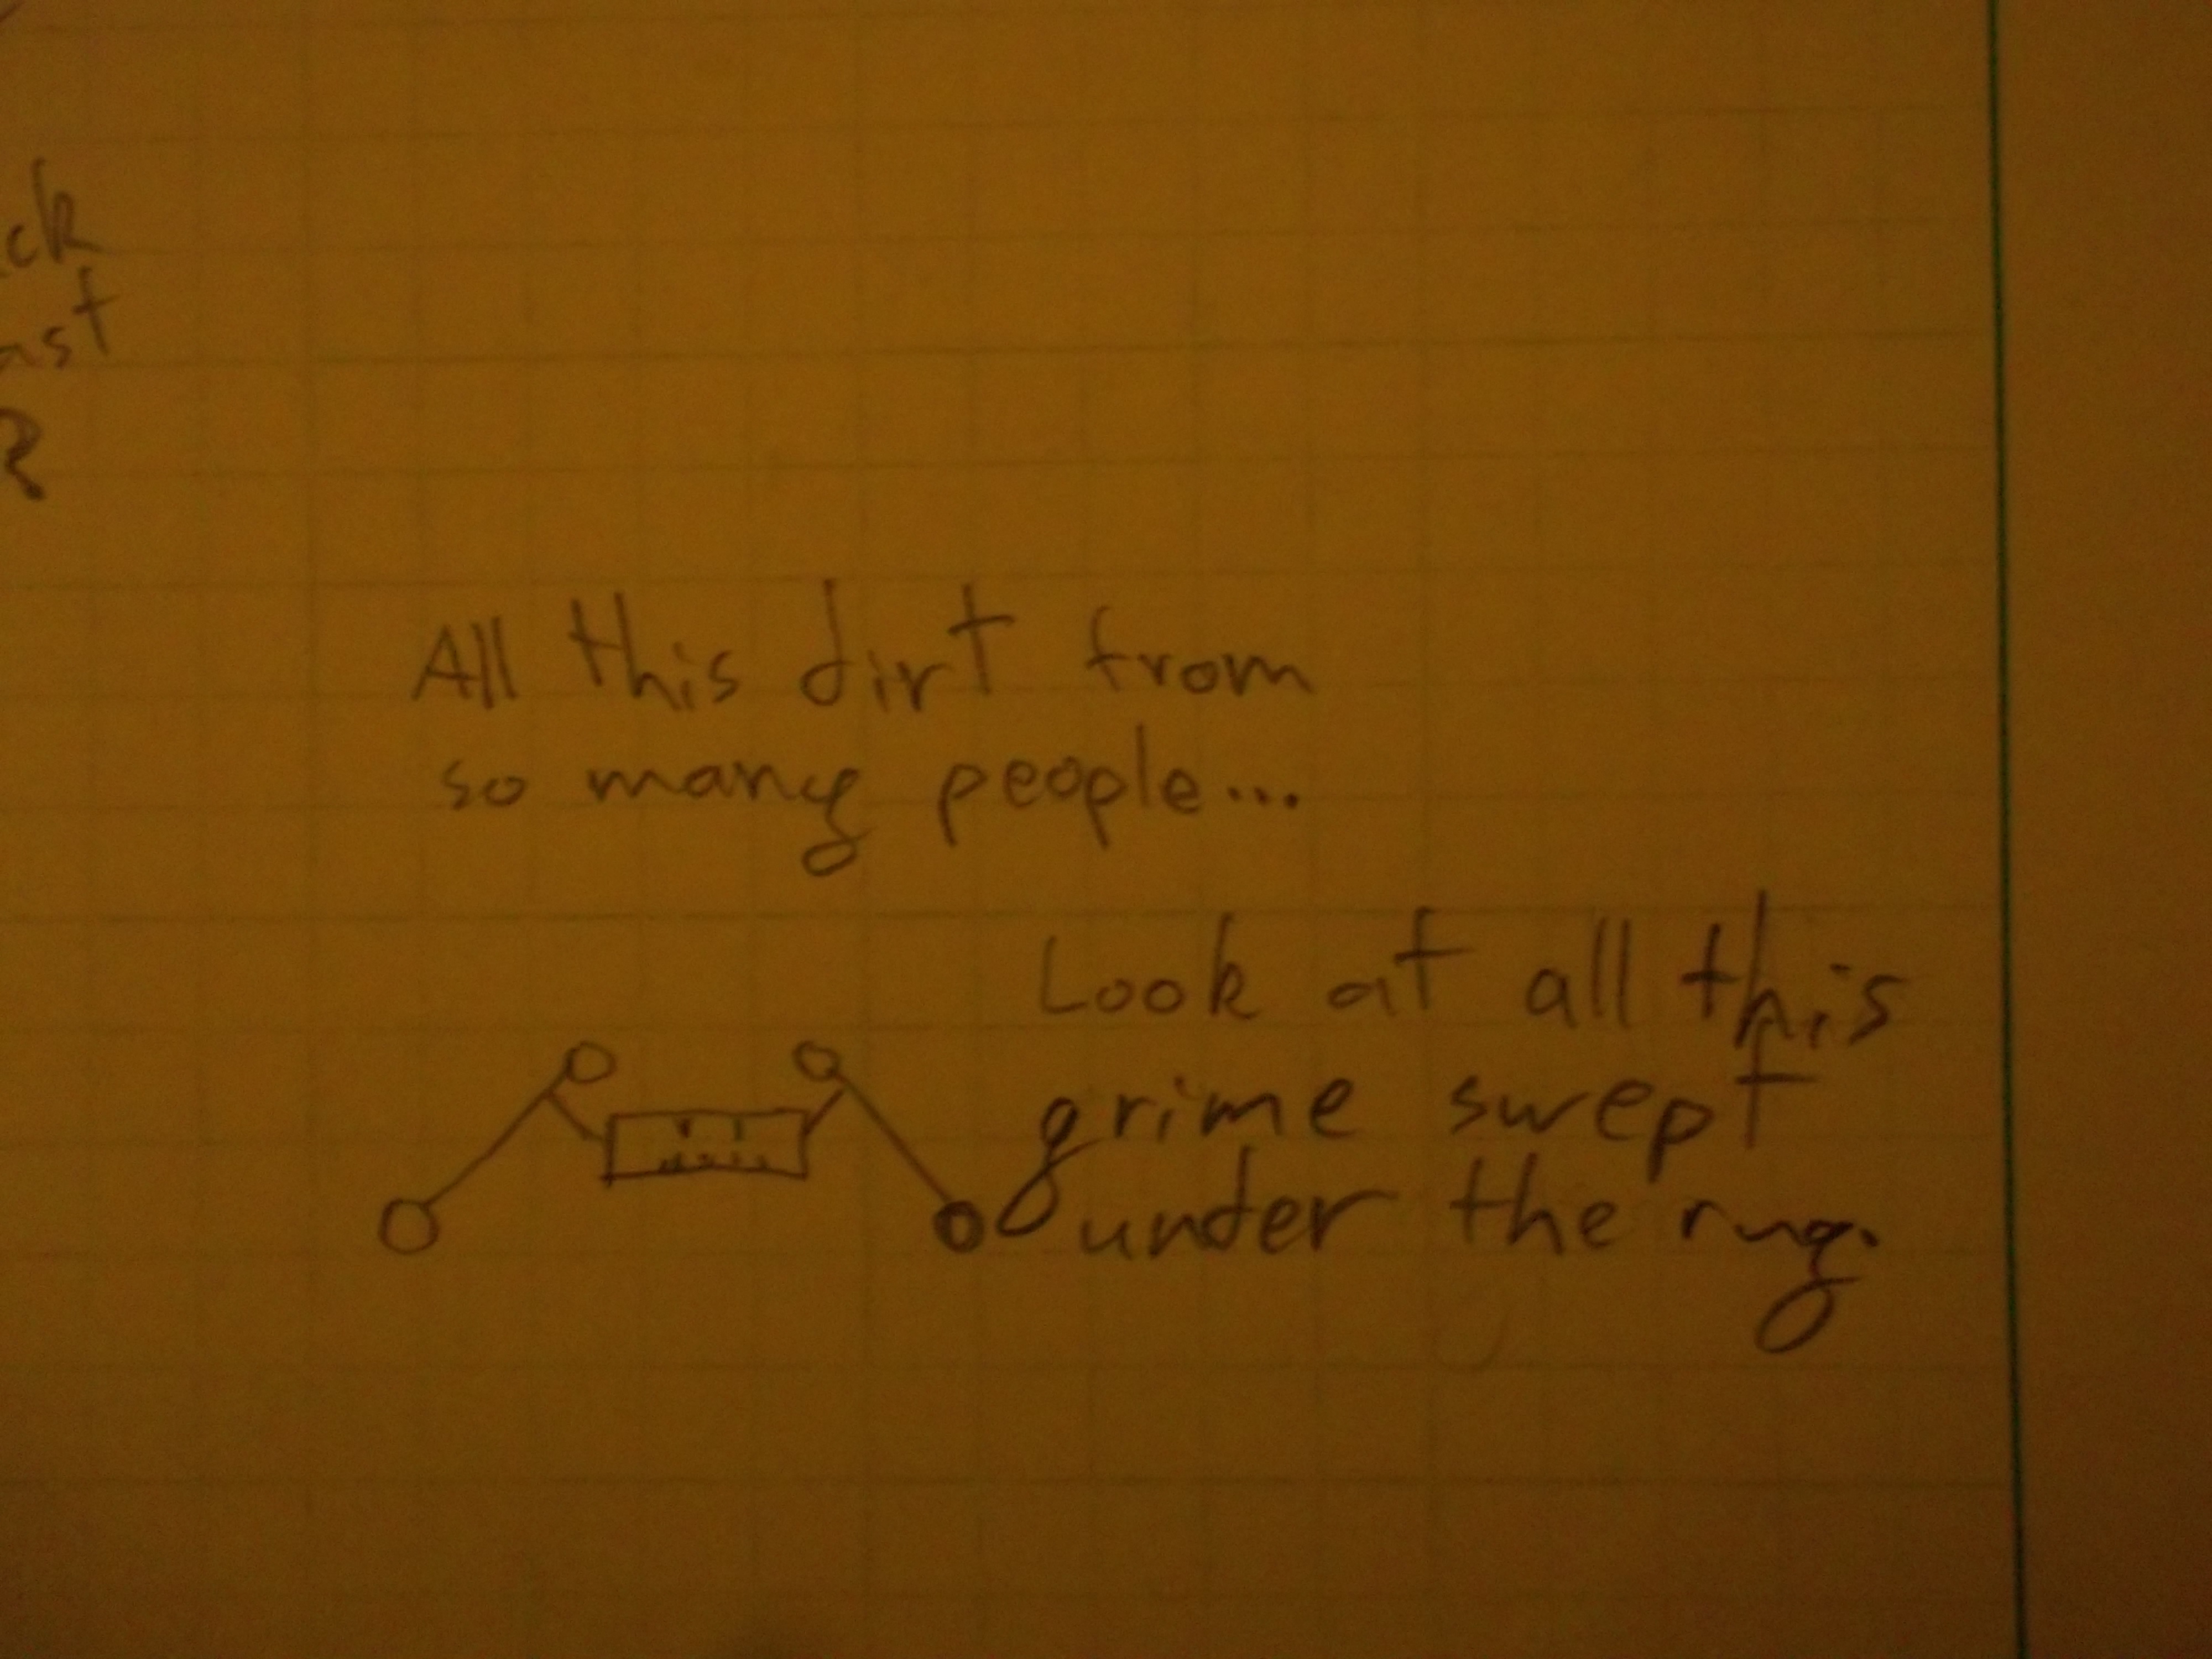 ck
ast
R
All this dirt from
so many people...
Look at all this
grime swept
under the rug.